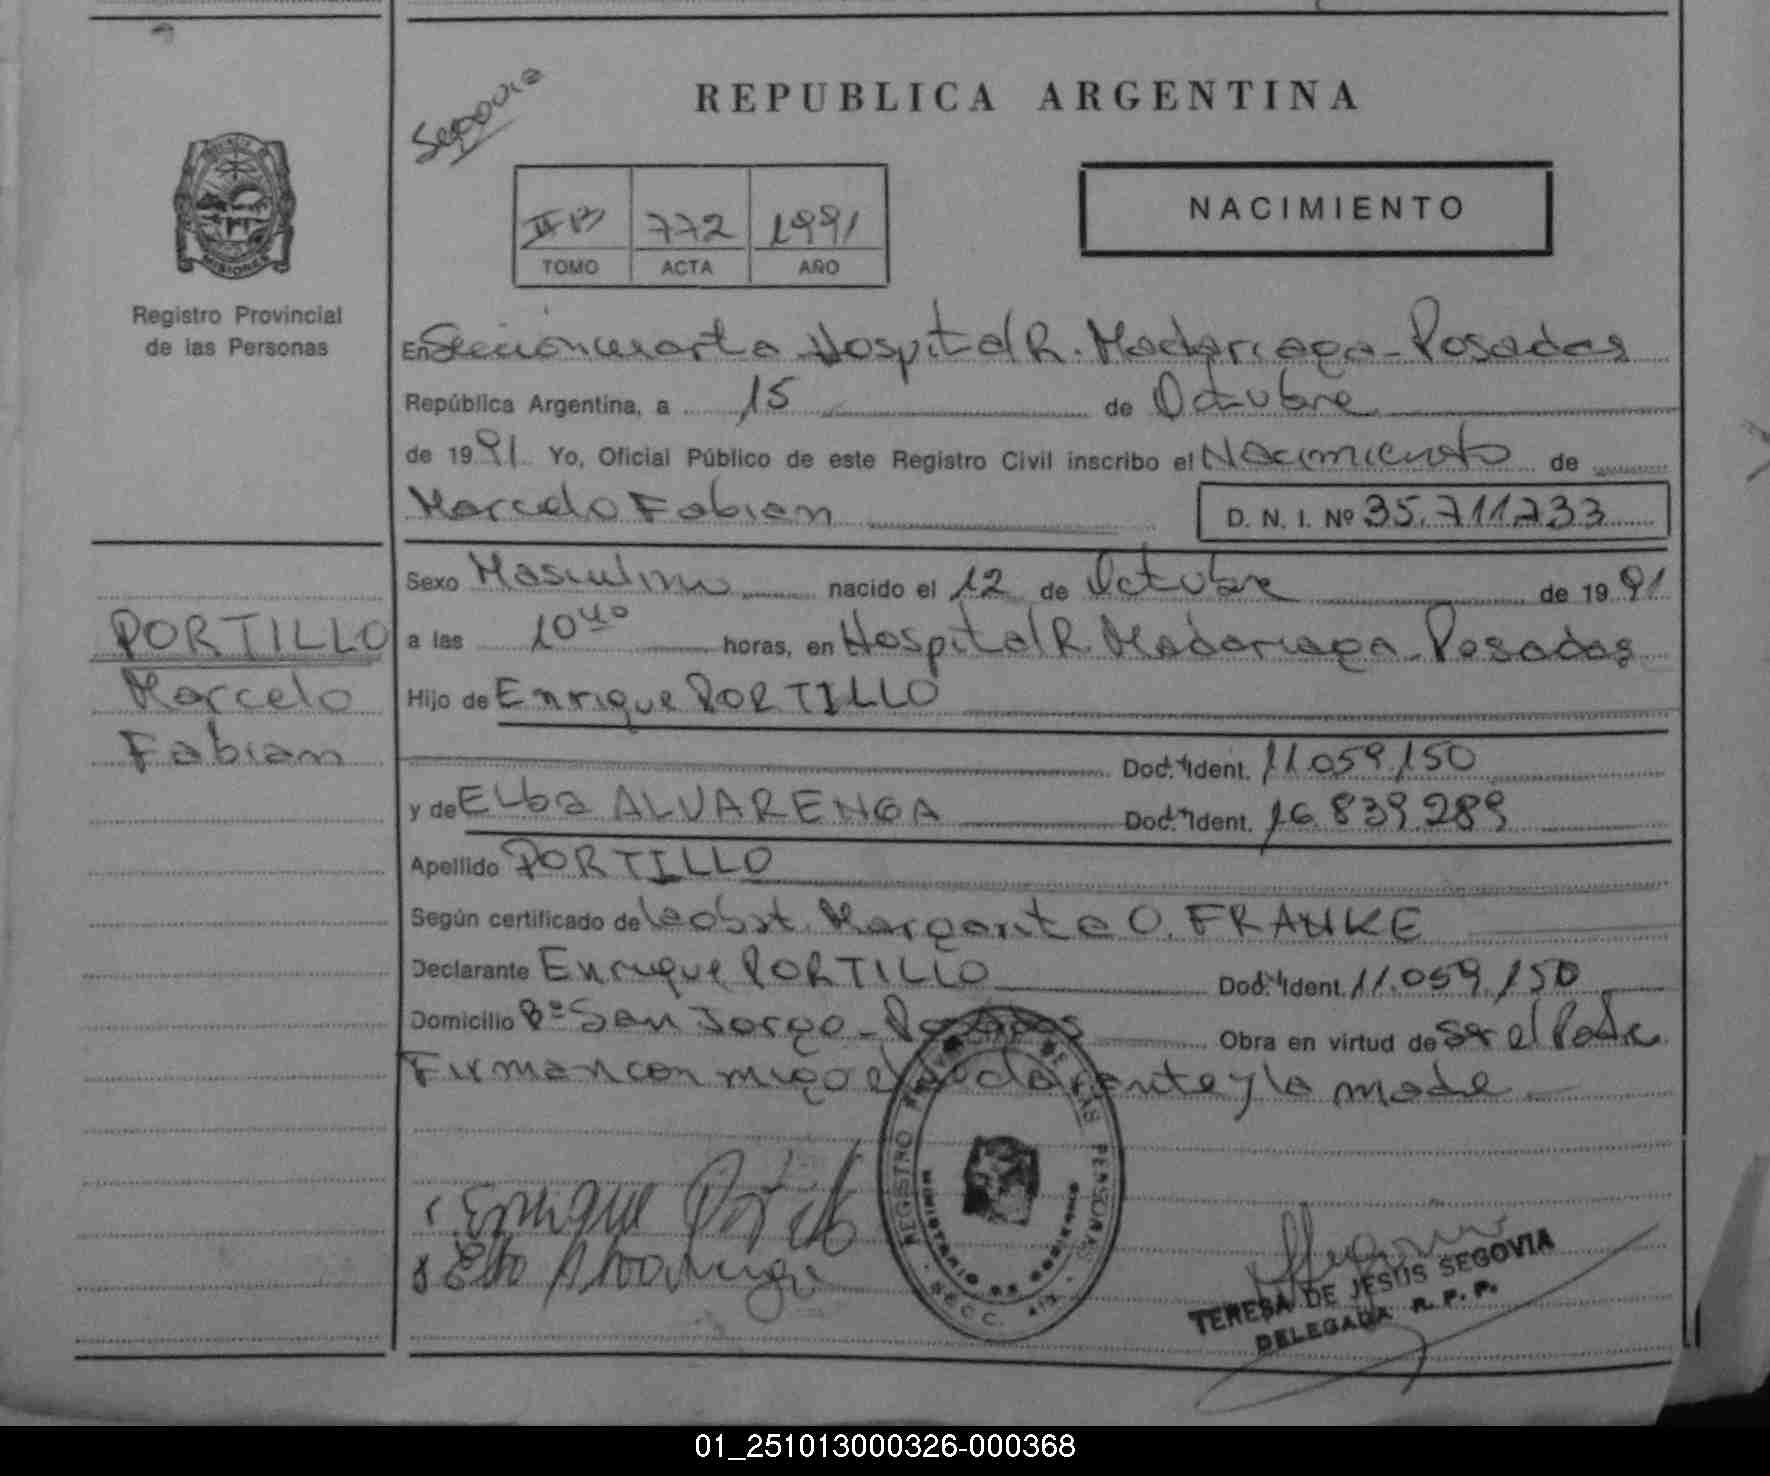 REPUBLICA ARGENTINA
Segovia
NACIMIENTO
II B 772 1991
TOMO ACTA AÑO
MISIONES
Registro Provincial
de las Personas
En Sección cuarta Hospital R. Madariaga - Posadas
República Argentina, a 15 de Octubre
de 1991 Yo, Oficial Público de este Registro Civil inscribo el Nacimiento de
Marcelo Fabian D. N. I. Nº 35.711733
Sexo Masculino nacido el 12 de Octubre de 1991
a las 10 40 horas, en Hospital R. Madariaga - Posadas
Hijo de Enrique PORTILLO
Doc. Ident. 11.059.150
y de Elba ALVARENGA Doc. Ident. 16.839.289
Apellido PORTILLO
Según certificado de la obst. Margarita O. FRANKE
Declarante Enrique PORTILLO Doc. Ident. 11.059.150
Domicilio Bº San Jorge - Posadas Obra en virtud de ser el Padre
Firman con migo el declarante y la madre
PORTILLO
Marcelo
Fabian
Enrique Portillo
Elba Alvarenga
REGISTRO PROVINCIAL DE LAS PERSONAS
MINISTERIO DE GOBIERNO
SECC. 4ta.
TERESA DE JESUS SEGOVIA
DELEGADA R. P. P.
01_251013000326-000368